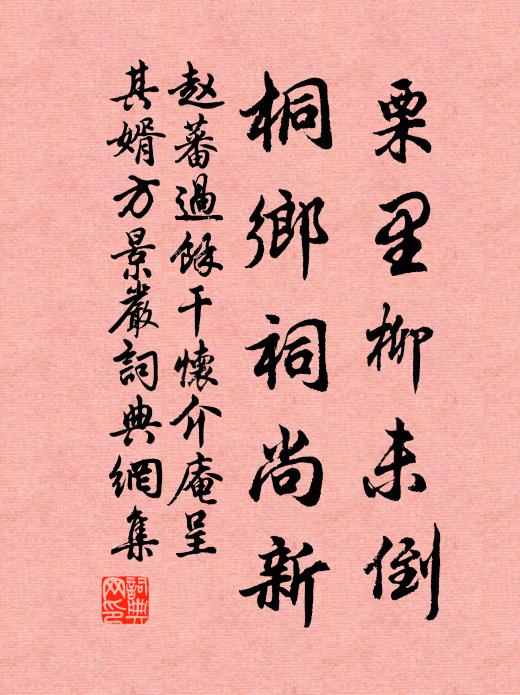 栗里柳未倒
桐鄉祠尚新
赵蕃過餘干懷介庵呈
其婿方景嚴詞典網集